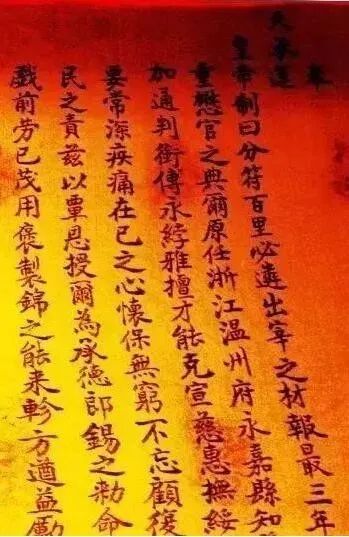 奉
天承運
皇帝制曰分符百里必遴出宰之材報最三年
重懋官之典爾原任浙江温州府永嘉縣知
加通判銜傅永綍雅擅才能克宣慈惠撫綏
要常深疾痛在已之心懷保無窮不忘顧復
民之責兹以覃恩授爾為承德郎錫之勅命
戲前劳已茂用褒製錦之能来軫方遒益勵